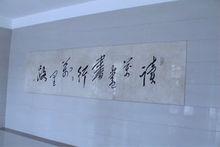 讀萬卷書行萬里路